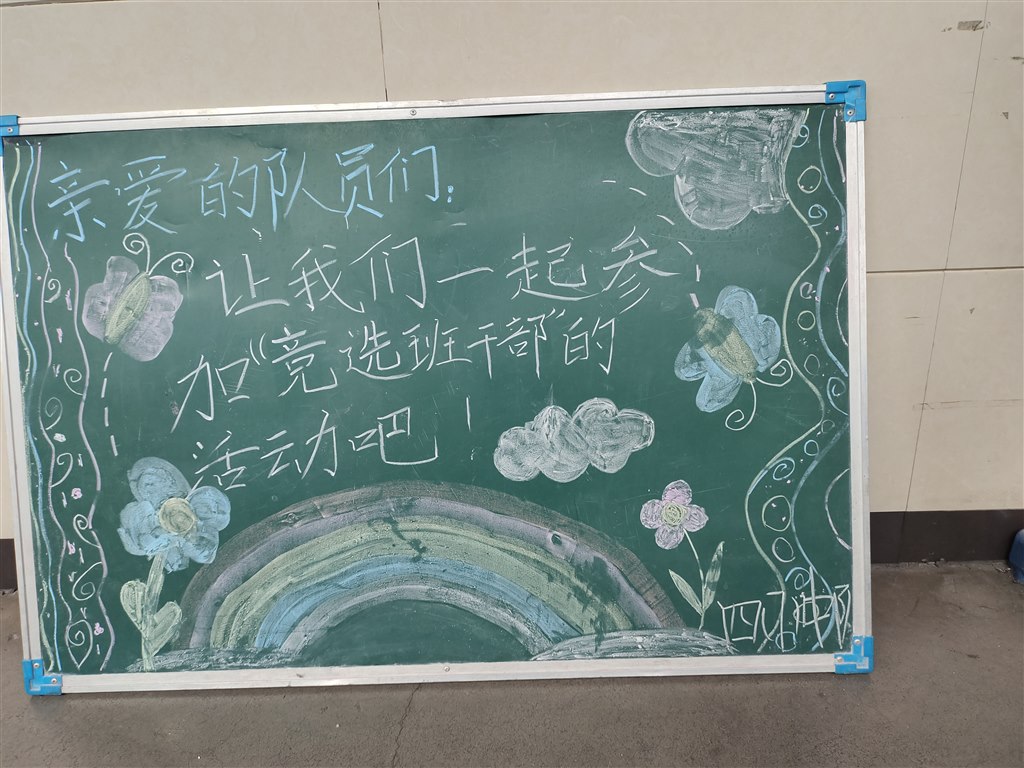 亲爱的队员们:
让我们一起参
加“竞选班干部”的
活动吧!
四 中队